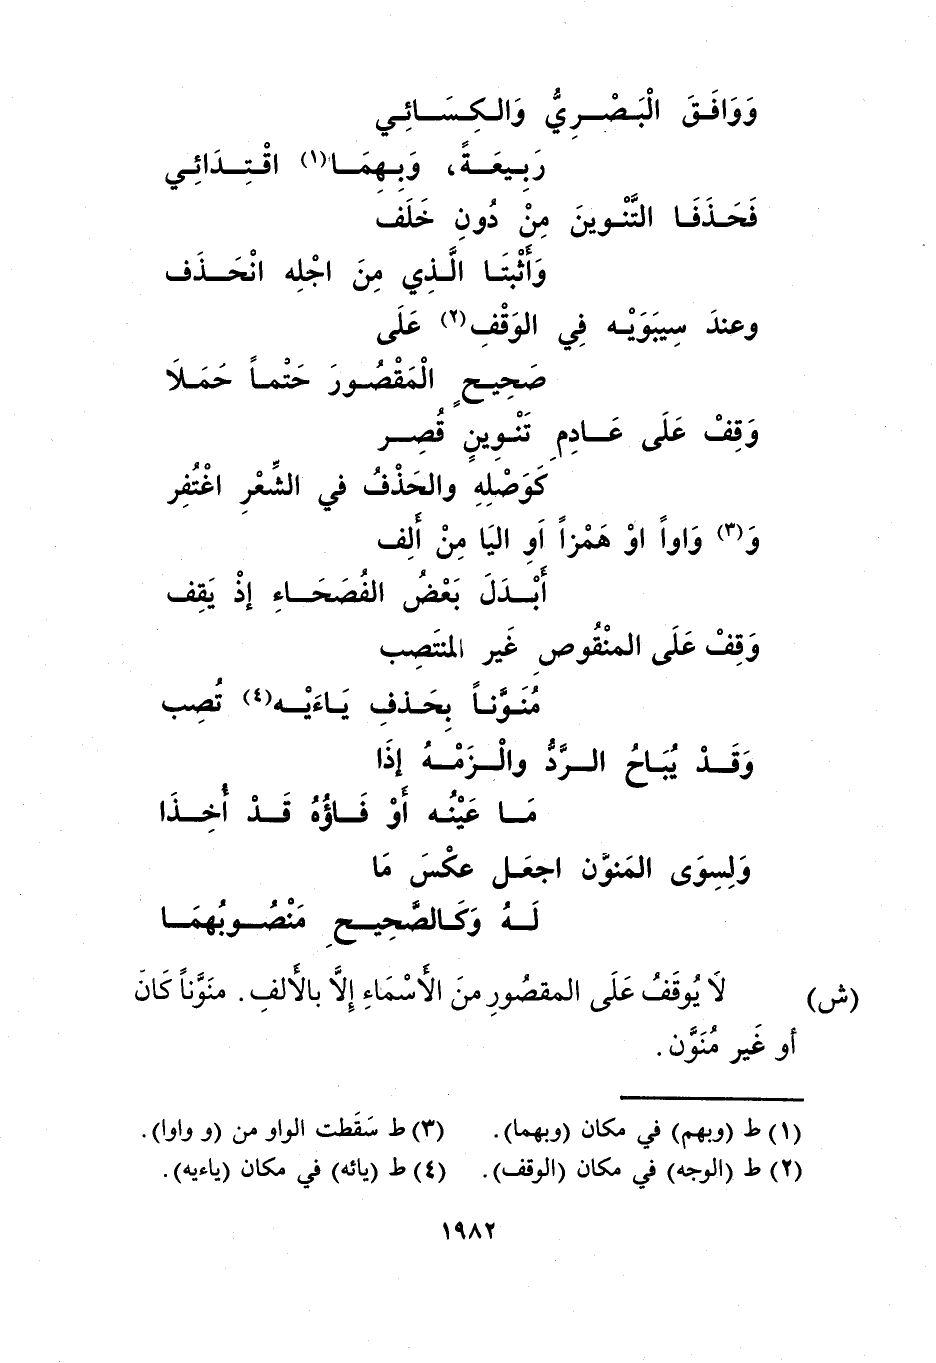 وَوَافَقَ الْبَصْرِيُّ وَالكِسَائِي
رَبِيعَةً، وَبِهِمَا(١) اقْتِدَائِي
فَحَذَفَا التَّنْوِينَ مِنْ دُونِ خَلَف
وَأَثْبَتَا الَّذِي مِنَ اجْلِه انْحَذَف
وعندَ سِيبَوَيْه فِي الوَقْفِ(٢) عَلَى
صَحِيحٍ الْمَقْصُورَ حَتْماً حَمَلَا
وَقِفْ عَلَى عَادِمِ تَنْوِينٍ قُصِر
كَوَصْلِهِ والحَذْفُ في الشِّعْرِ اغْتُفِر
وَ(٣) وَاواً اوْ هَمْزاً اَوِ اليَا مِنْ أَلِف
أَبْدَلَ بَعْضُ الفُصَحَاءِ إذْ يَقِف
وَقِفْ عَلَى المنْقُوصِ غَير المنتَصِب
مُنَوَّناً بِحَذفِ يَاءَيْه(٤) تُصِب
وَقَدْ يُبَاحُ الرَّدُّ والْزَمْهُ إذَا
مَا عَيْنُه أَوْ فَاؤُهُ قَدْ أُخِذَا
وَلِسِوَى المَنوَّن اجعَل عكْسَ مَا
لَهُ وَكَالصَّحِيحِ مَنْصُوبُهمَا
(ش) لَا يُوقَفُ عَلَى المقصُورِ منَ الأَسْمَاءِ إِلَّا بالأَلفِ. منَوَّناً كَانَ
أو غَير مُنَوَّن.
(١) ط (وبهم) في مكان (وبهما). (٣) ط سَقَطت الواو من (و واوا).
(٢) ط (الوجه) في مكان (الوقف). (٤) ط (يائه) في مكان (ياءيه).
١٩٨٢